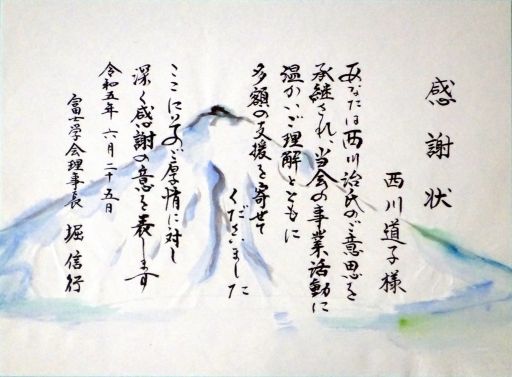 感謝状
西川道子様
あなたは西川治氏のご意思を
承継され、当会の事業活動に
温かいご理解とともに
多額の支援を寄せて
くださいました
ここにそのご厚情に対し
深く感謝の意を表します
令和五年六月二十五日
富士学会理事長 堀信行